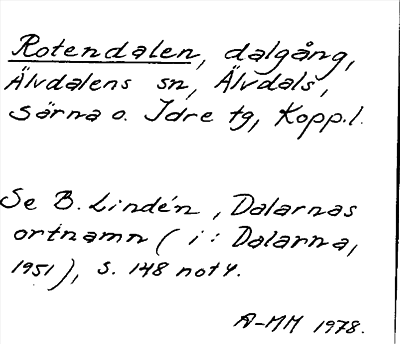 Rotendalen, dalgång,
Älvdalens sn, Älvdals,
Särna o. Idre tg, Kopp.l.
Se B. Lindén, Dalarnas
ortnamn (i: Dalarna,
1951), s. 148 not 4.
A-MM 1978.